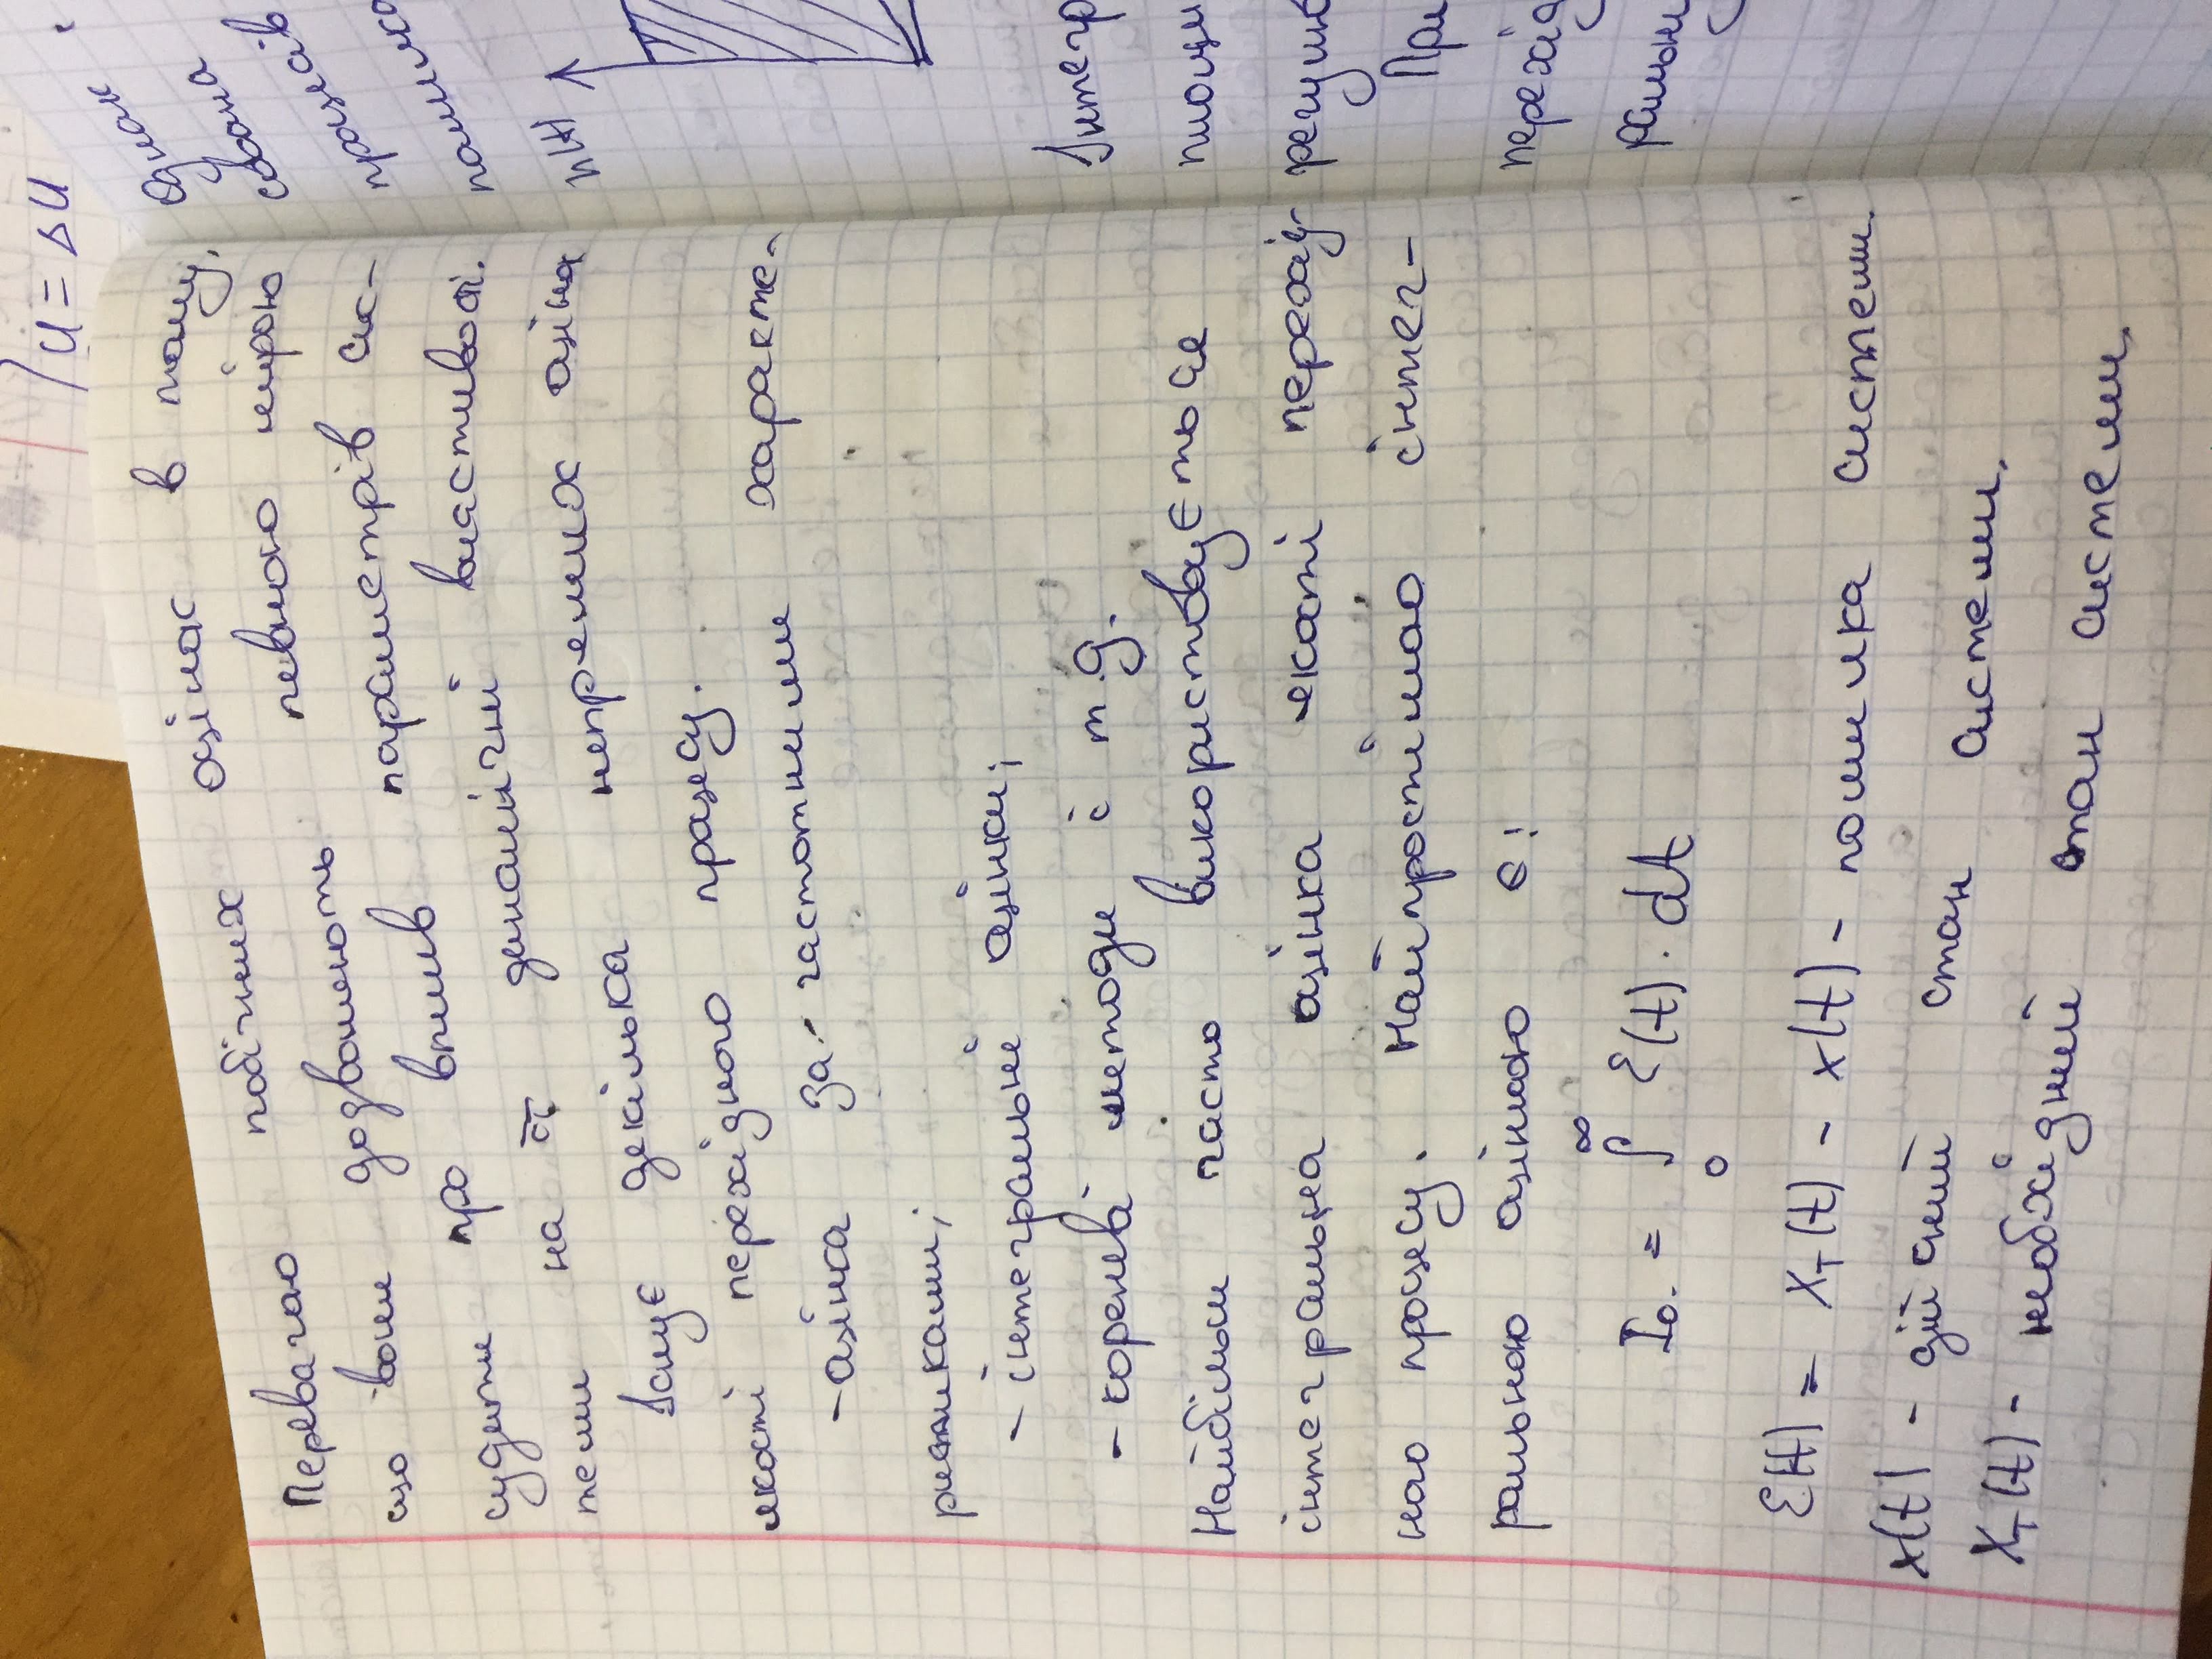 U = ΔU
Перевагою побічних оцінок в тому,
що вони дозволяють певною мірою
судити про вплив параметрів сис-
теми на її динамічні властивості.
Існує декілька непрямих оцінок
якості перехідного процесу.
- оцінка за частотними характе-
ристиками;
- інтегральні оцінки;
- кореневі методи і т.д.
Найбільш часто використовується
інтегральна оцінка якості перехід-
ного процесу. Найпростішою інтег-
ральною оцінкою є:
I₀. = ∫₀^∞ ℰ(t) · dt
ℰ(t) = X_T(t) - x(t) - помилка системи.
x(t) - дійсний стан системи.
X_T(t) - необхідний стан системи.
Однак
сована
процесів
помилка
h(t)
Інтегр
площи
регулю
При
перехід
ральну